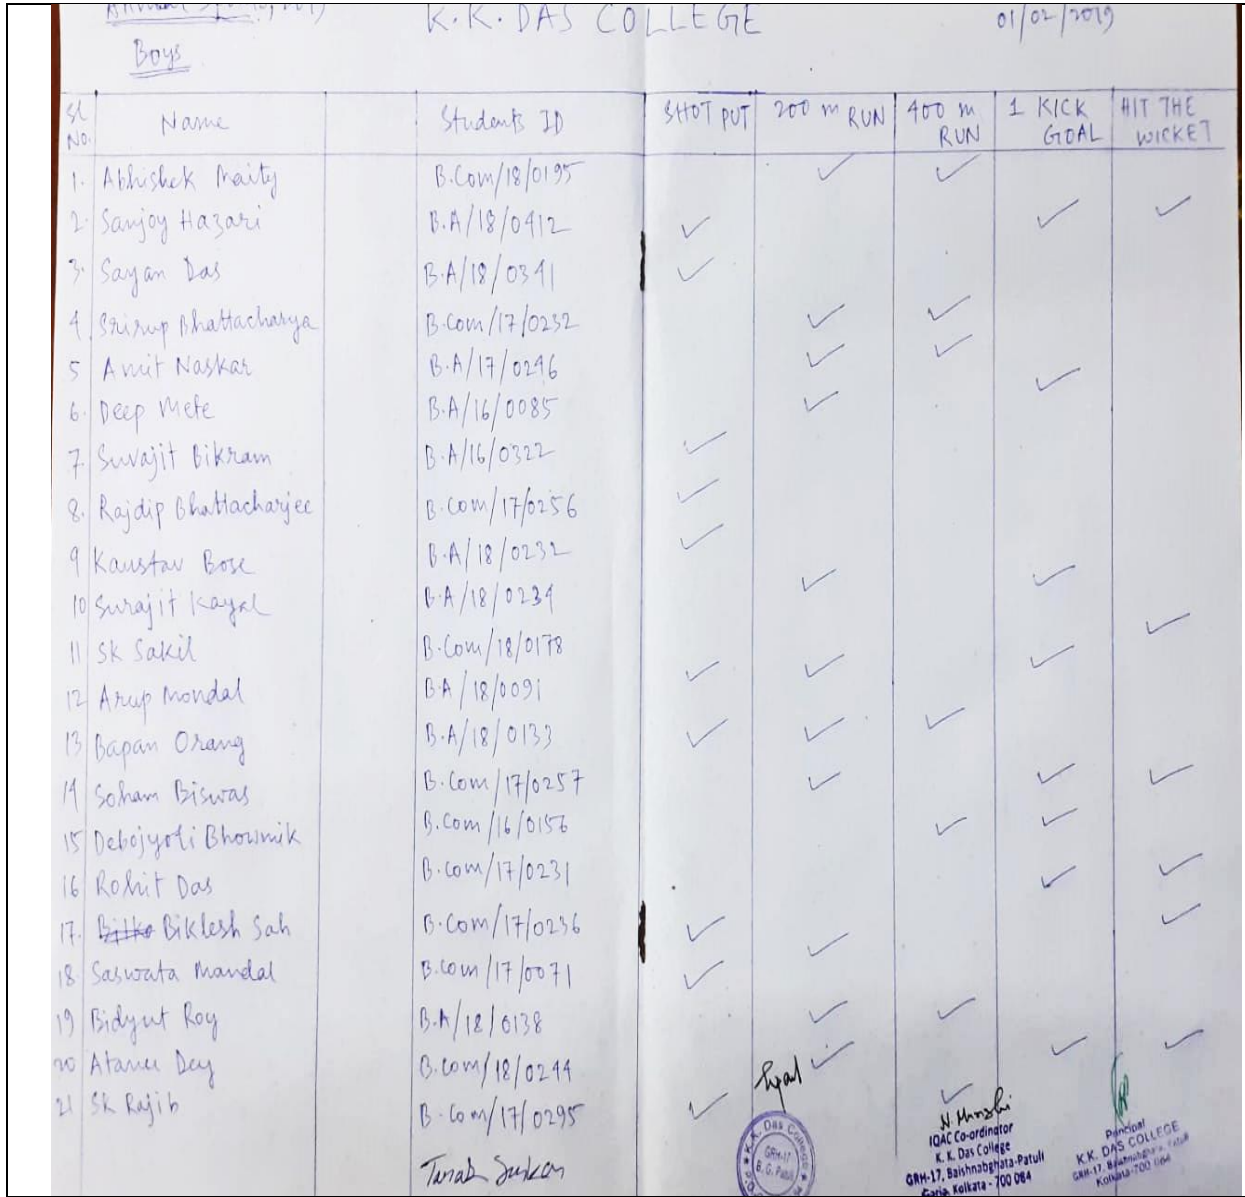 Annual Sports, 2019 K.K. DAS COLLEGE 01/02/2019
Boys
Sl No. Name Students ID SHOT PUT 200 m RUN 400 m RUN 1 KICK GOAL HIT THE WICKET
1. Abhishek Maity B.Com/18/0195 ✓ ✓
2. Sanjoy Hazari B.A/18/0412 ✓ ✓ ✓
3. Sayan Das B.A/18/0341 ✓
4 Srirup Bhattacharya B.Com/17/0232 ✓ ✓
5 Amit Naskar B.A/17/0246 ✓ ✓
6. Deep Mete B.A/16/0085 ✓ ✓
7. Suvajit Bikram B.A/16/0322 ✓
8. Rajdip Bhattacharjee B.Com/17/0256 ✓
9 Kaustav Bose B.A/18/0232 ✓
10 Surajit Kayal B.A/18/0234 ✓ ✓
11 SK Sakil B.Com/18/0178 ✓
12 Arup Mondal B.A/18/0091 ✓ ✓ ✓
13 Bapan Orang B.A/18/0133 ✓ ✓ ✓
14 Soham Biswas B.Com/17/0257 ✓ ✓ ✓
15 Debojyoti Bhowmik B.Com/16/0156 ✓ ✓
16 Rohit Das B.Com/17/0231 ✓ ✓
17. Biklesh Sah B.Com/17/0236 ✓ ✓
18. Saswata Mandal B.Com/17/0071 ✓ ✓
19 Bidyut Roy B.A/18/0138 ✓ ✓
20 Atanu Dey B.Com/18/0244 ✓ ✓ ✓
21 SK Rajib B.Com/17/0295 ✓ ✓
Tanak Sarkar
K.K. Das College
GRH-17
B. G. Patuli
N. Munshi
IQAC Co-ordinator
K. K. Das College
GRH-17, Baishnabghata-Patuli
Garia, Kolkata - 700 084
Principal
K.K. DAS COLLEGE
GRH-17, Baishnabghata, Patuli
Kolkata-700 084